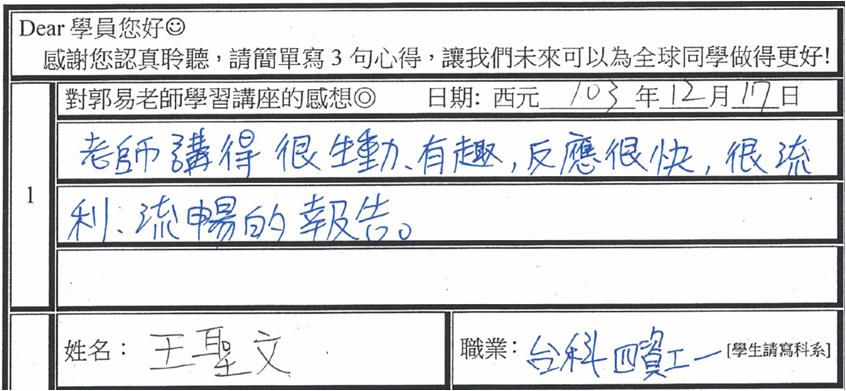 Dear 學員您好☺
感謝您認真聆聽，請簡單寫 3 句心得，讓我們未來可以為全球同學做得更好!
對郭易老師學習講座的感想◎ 日期: 西元 103 年 12 月 17 日
1
老師講得很生動、有趣,反應很快,很流
利、流暢的報告。
姓名： 王聖文
職業： 台科四資工一 [學生請寫科系]